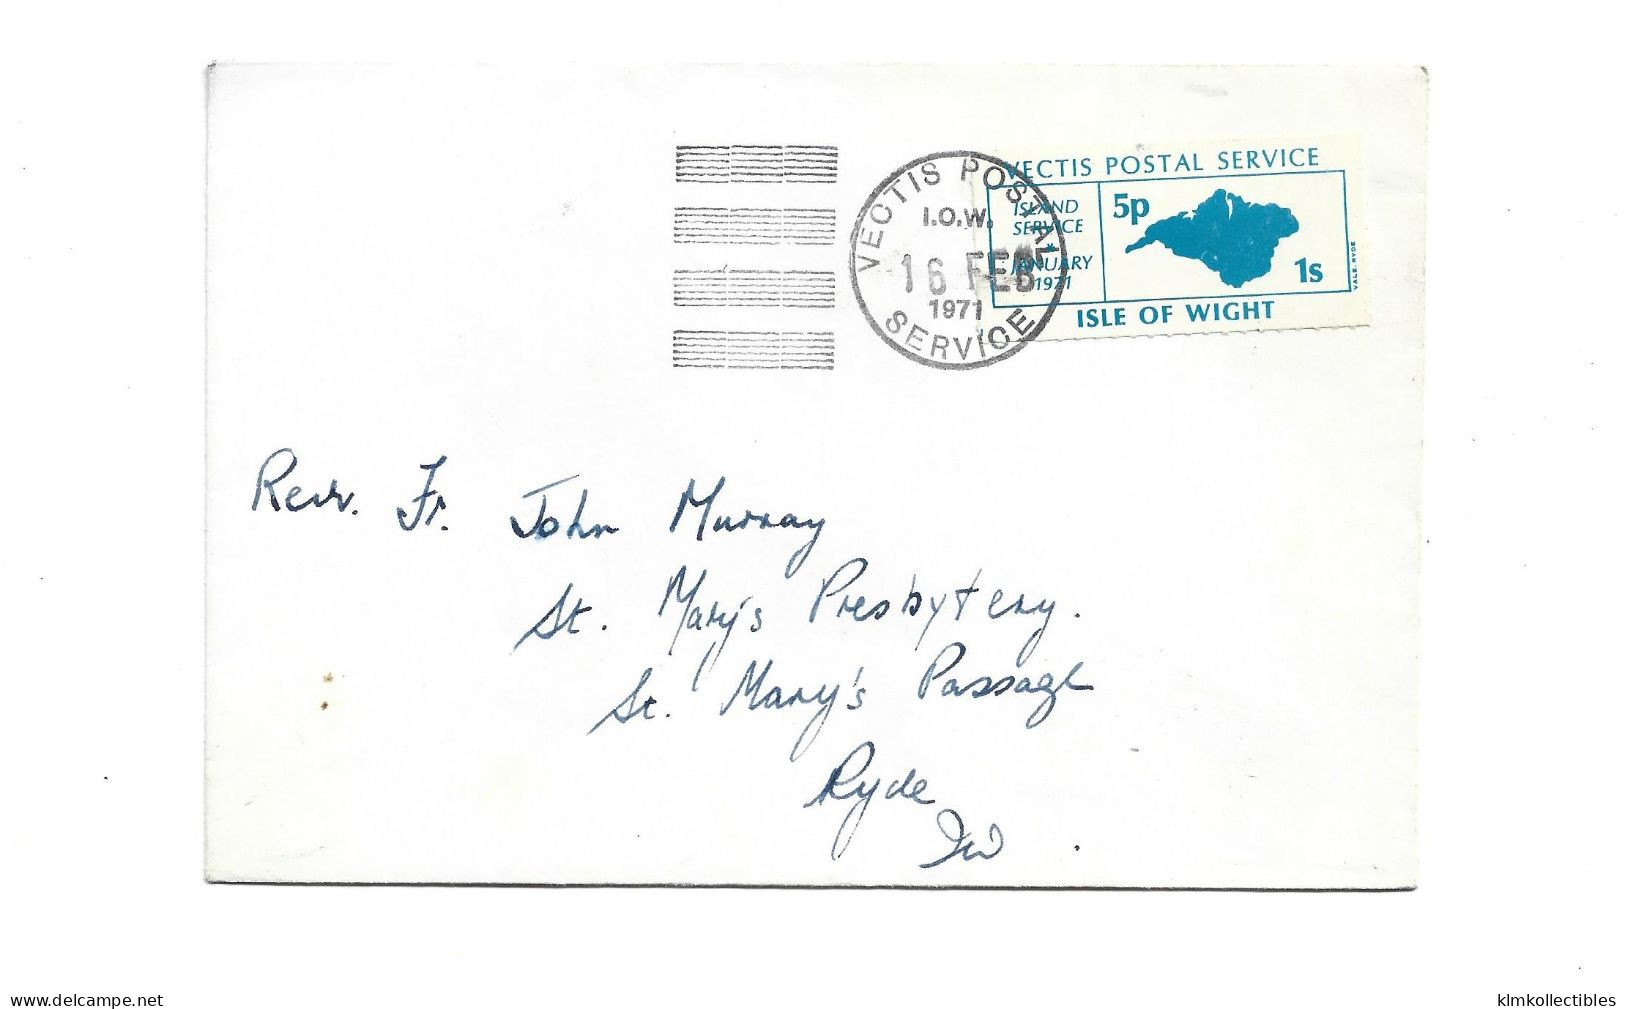 VECTIS POSTAL SERVICE
I.O.W.
16 FEB
1971
VECTIS POSTAL SERVICE
ISLAND
SERVICE
*
JANUARY
1971
5p
1s
VALE. RYDE
ISLE OF WIGHT
Revr. Fr. John Murray
St. Mary's Presbytery.
St. Mary's Passage
Ryde
IW.
www.delcampe.net
klmkollectibles